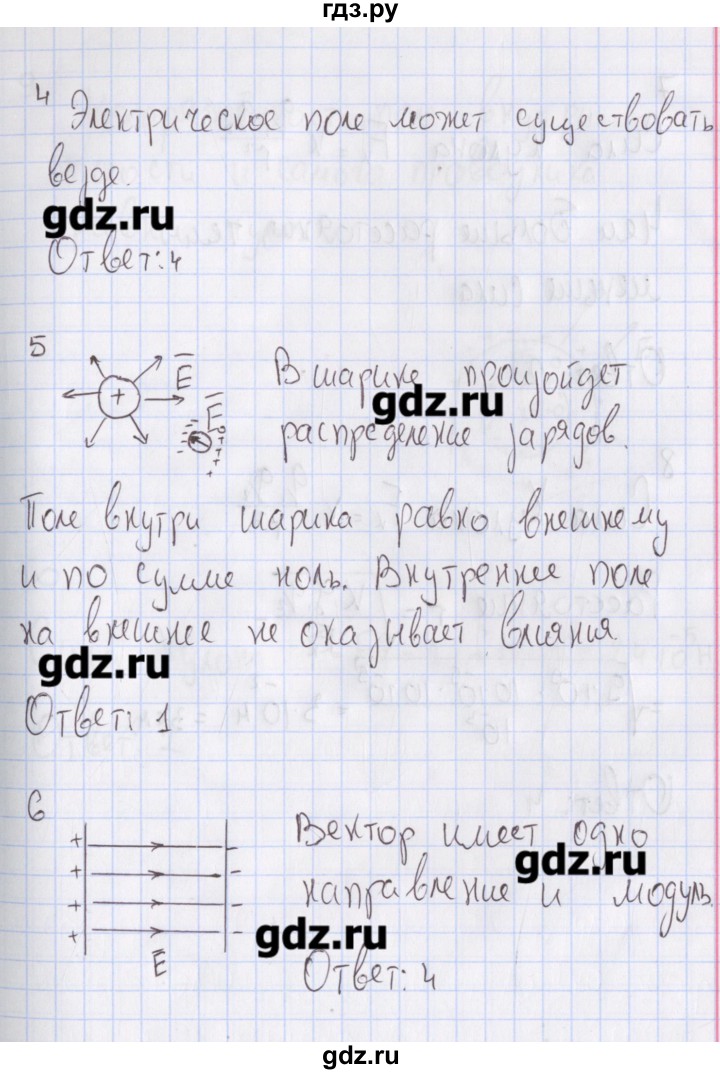 гдз.ру
4 Электрическое поле может существовать
везде.
gdz.ru
Ответ: 4
5
E
E
В шарике произойдет
gdz.ru
распределение зарядов.
Поле внутри шарика равно внешнему
и по сумме ноль. Внутреннее поле
на внешнее не оказывает влияния
gdz.ru
Ответ: 1
6
+ -
+ -
+ -
+ -
E
Вектор имеет одно
gdz.ru
направление и модуль.
gdz.ru
Ответ: 4
gdz.ru